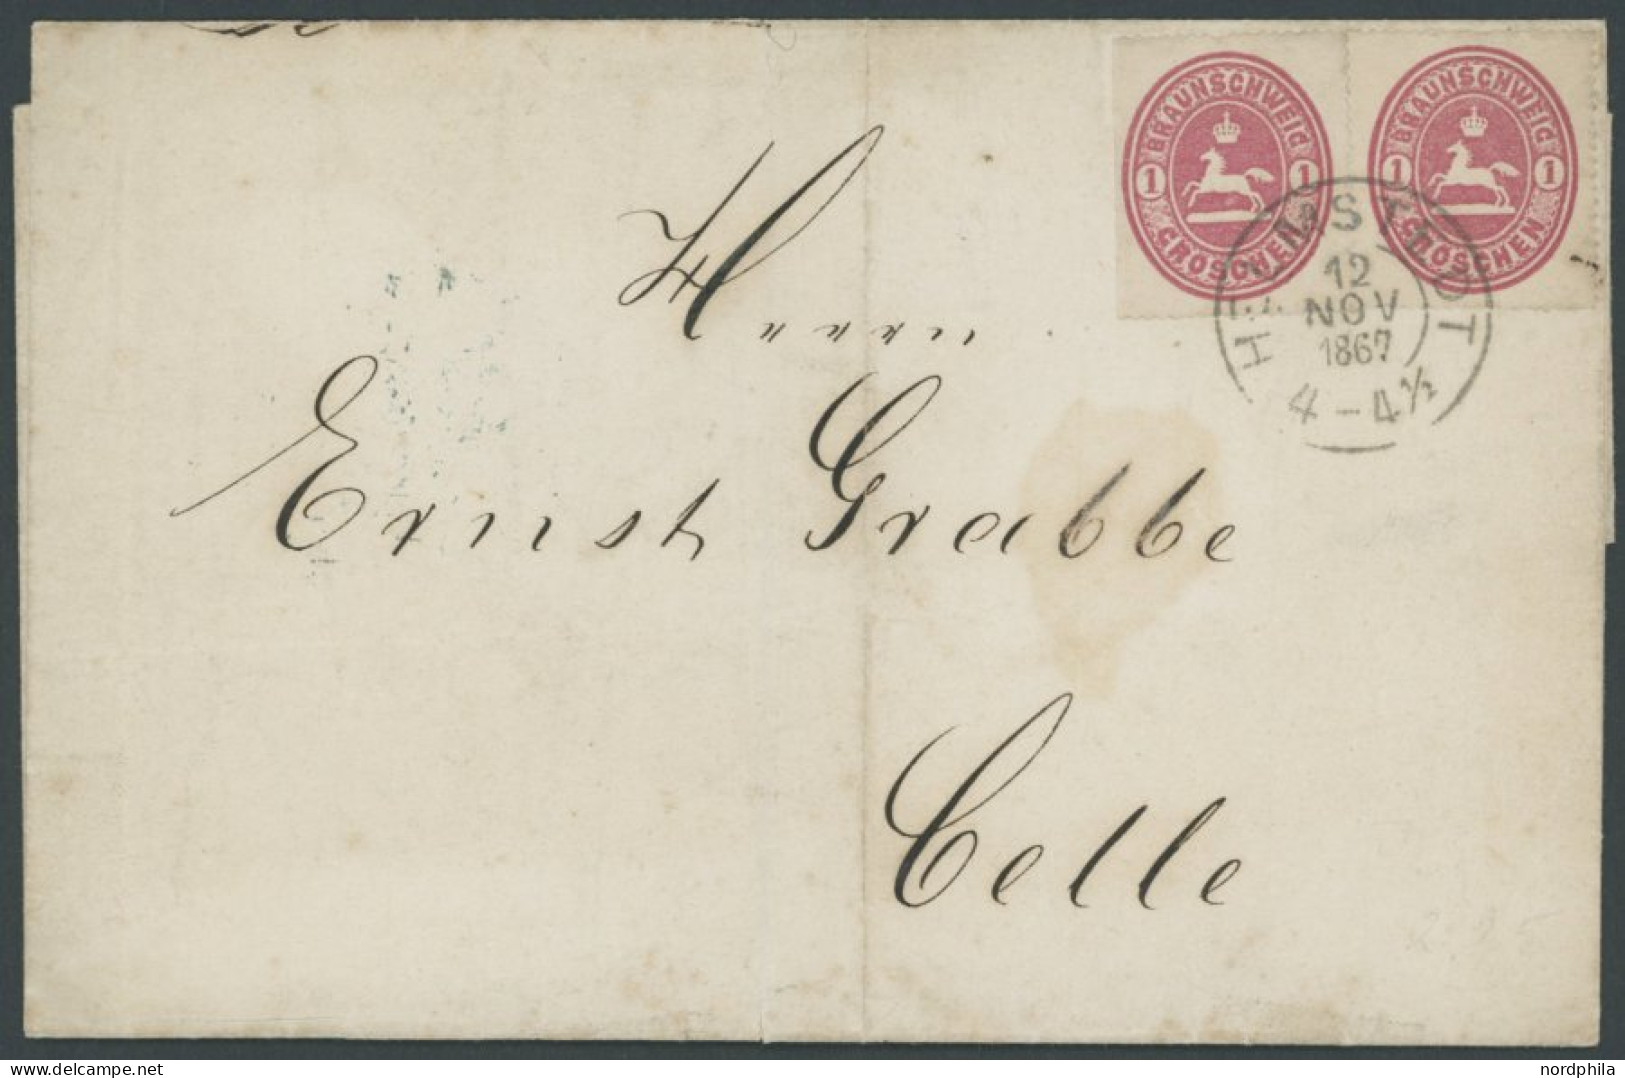 BRAUNSCHWEIG
1 1
GROSCHEN
BRAUNSCHWEIG
1 1
GROSCHEN
HELMSTEDT
12
NOV
1867
4-4½
Herrn
Ernst Grabbe
Celle
www.nordphila.com